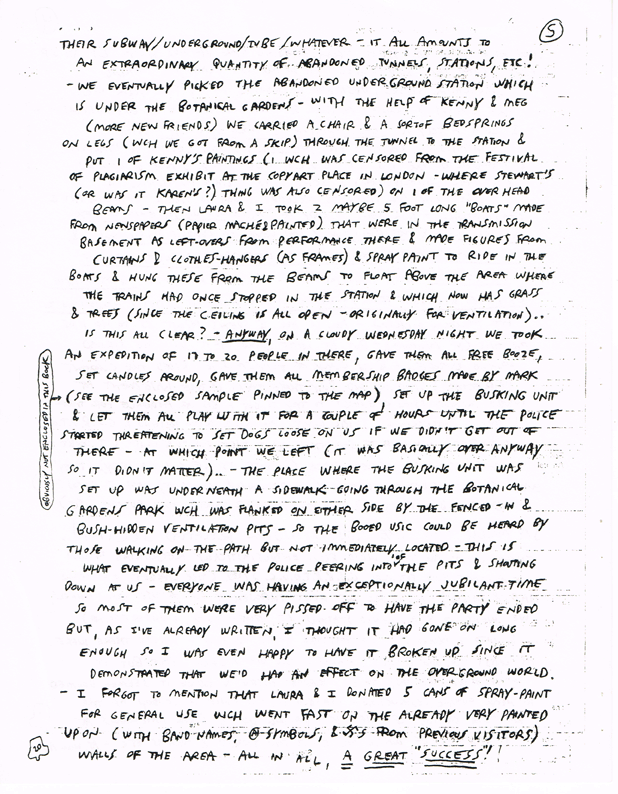 5
THEIR SUBWAY/UNDERGROUND/TUBE/WHATEVER - IT ALL AMOUNTS TO
AN EXTRAORDINARY QUANTITY OF ABANDONED TUNNELS, STATIONS, ETC!
- WE EVENTUALLY PICKED THE ABANDONED UNDERGROUND STATION WHICH
IS UNDER THE BOTANICAL GARDENS - WITH THE HELP OF KENNY & MEG
(MORE NEW FRIENDS) WE CARRIED A CHAIR & A SORT OF BEDSPRINGS
ON LEGS (WCH WE GOT FROM A SKIP) THROUGH THE TUNNEL TO THE STATION &
PUT 1 OF KENNY'S PAINTINGS (1 WCH WAS CENSORED FROM THE FESTIVAL
OF PLAGIARISM EXHIBIT AT THE COPYART PLACE IN LONDON - WHERE STEWART'S
(OR WAS IT KAREN'S?) THING WAS ALSO CENSORED) ON 1 OF THE OVERHEAD
BEAMS - THEN LAURA & I TOOK 2 MAYBE 5 FOOT LONG "BOATS" MADE
FROM NEWSPAPERS (PAPIER MACHÉ & PAINTED) THAT WERE IN THE TRANSMISSION
BASEMENT AS LEFT-OVERS FROM PERFORMANCE THERE & MADE FIGURES FROM
CURTAINS & CLOTHES-HANGERS (AS FRAMES) & SPRAY PAINT TO RIDE IN THE
BOATS & HUNG THESE FROM THE BEAMS TO FLOAT ABOVE THE AREA WHERE
THE TRAINS HAD ONCE STOPPED IN THE STATION & WHICH NOW HAS GRASS
& TREES (SINCE THE CEILING IS ALL OPEN - ORIGINALLY FOR VENTILATION)..
IS THIS ALL CLEAR? - ANYWAY, ON A CLOUDY WEDNESDAY NIGHT WE TOOK
AN EXPEDITION OF 17 TO 20 PEOPLE IN THERE, GAVE THEM ALL FREE BOOZE,
SET CANDLES AROUND, GAVE THEM ALL MEMBERSHIP BADGES MADE BY MARK
(SEE THE ENCLOSED SAMPLE PINNED TO THE MAP) SET UP THE BUSKING UNIT
& LET THEM ALL PLAY WITH IT FOR A COUPLE OF HOURS UNTIL THE POLICE
STARTED THREATENING TO SET DOGS LOOSE ON US IF WE DIDN'T GET OUT OF
THERE - AT WHICH POINT WE LEFT (IT WAS BASICALLY OVER ANYWAY
SO IT DIDN'T MATTER).. - THE PLACE WHERE THE BUSKING UNIT WAS
SET UP WAS UNDERNEATH A SIDEWALK GOING THROUGH THE BOTANICAL
GARDENS PARK WCH WAS FLANKED ON EITHER SIDE BY THE FENCED-IN &
BUSH-HIDDEN VENTILATION PITS - SO THE BOOED USIC COULD BE HEARD BY
THOSE WALKING ON THE PATH BUT NOT IMMEDIATELY LOCATED - THIS IS
WHAT EVENTUALLY LED TO THE POLICE PEERING INTO 1 OF THE PITS & SHOUTING
DOWN AT US - EVERYONE WAS HAVING AN EXCEPTIONALLY JUBILANT TIME
SO MOST OF THEM WERE VERY PISSED OFF TO HAVE THE PARTY ENDED
BUT, AS I'VE ALREADY WRITTEN, I THOUGHT IT HAD GONE ON LONG
ENOUGH SO I WAS EVEN HAPPY TO HAVE IT BROKEN UP SINCE IT
DEMONSTRATED THAT WE'D HAD AN EFFECT ON THE OVERGROUND WORLD.
- I FORGOT TO MENTION THAT LAURA & I DONATED 5 CANS OF SPRAY-PAINT
FOR GENERAL USE WCH WENT FAST ON THE ALREADY VERY PAINTED
UPON (WITH BAND NAMES, Ⓐ-SYMBOLS, & 卐'S FROM PREVIOUS VISITORS)
WALLS OF THE AREA - ALL IN ALL, A GREAT "SUCCESS"!
OBVIOUSLY NOT ENCLOSED IN THIS BOOK
20